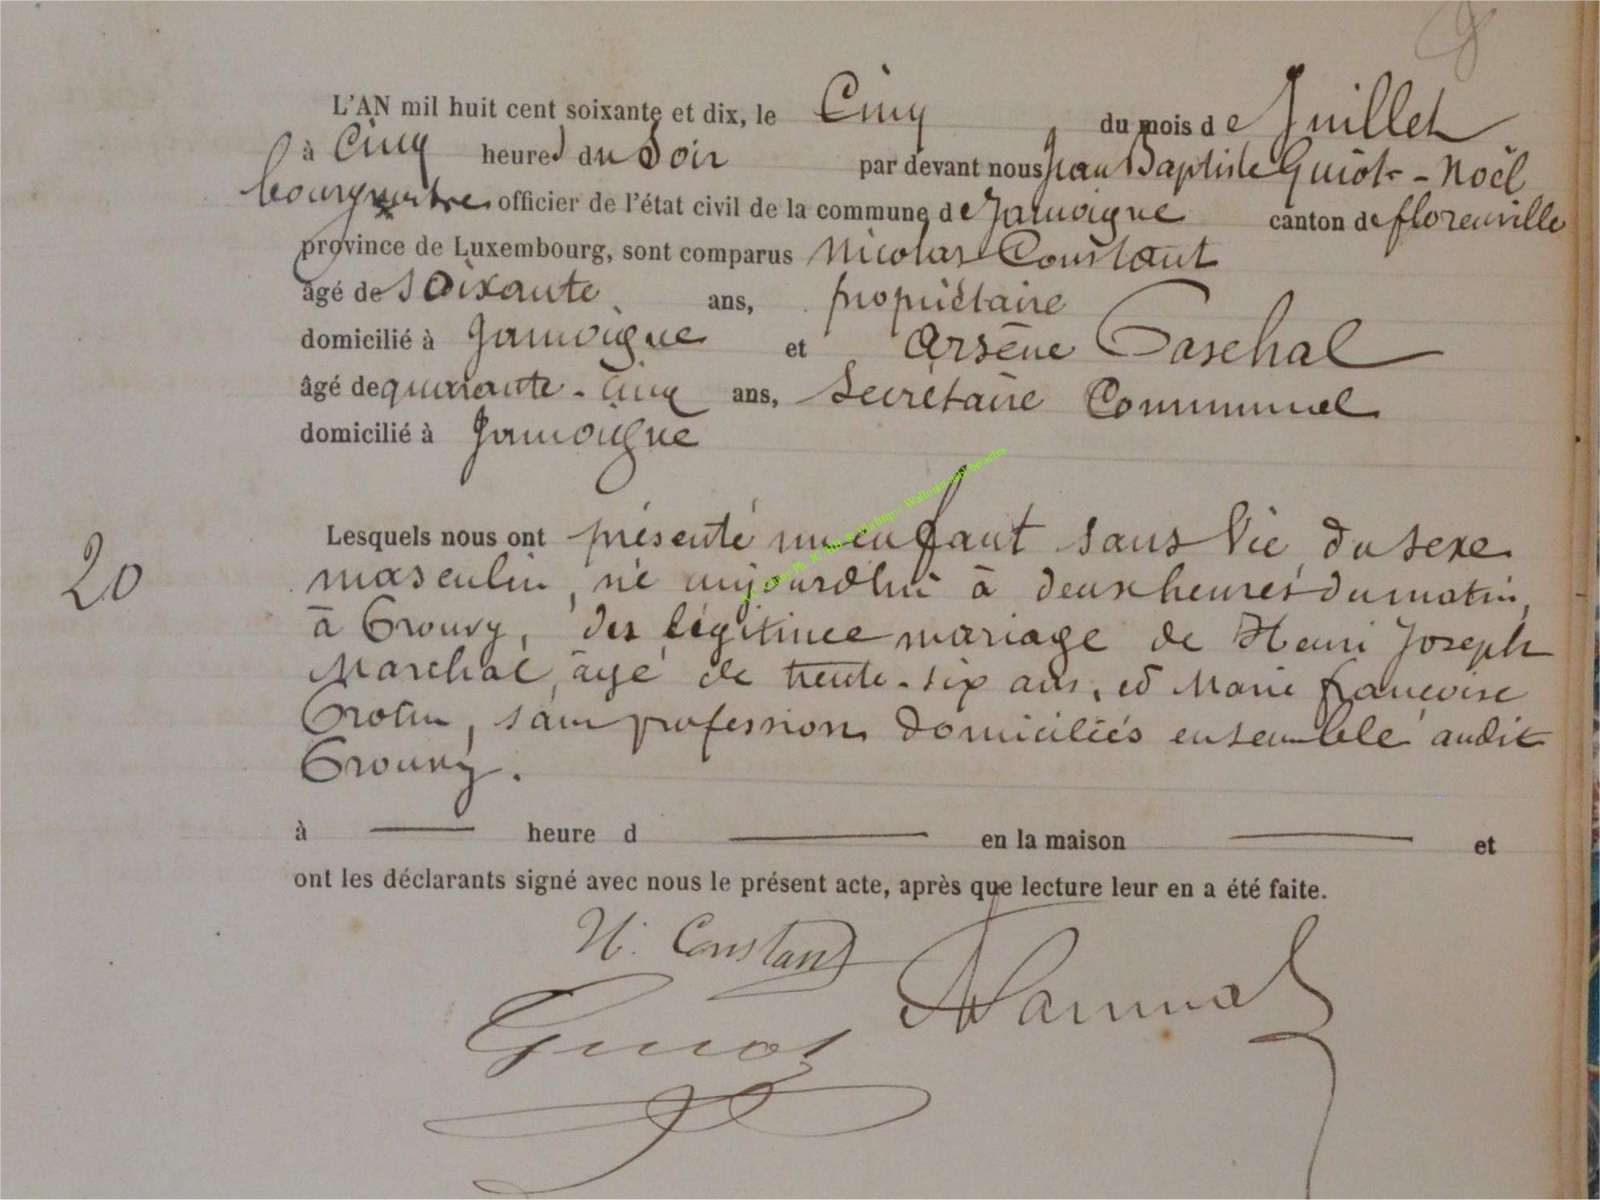 L'AN mil huit cent soixante et dix, le Cinq du mois de Juillet
à Cinq heures du Soir par devant nous Jean Baptiste Guiot-Noël
bourgmestre officier de l'état civil de la commune de Jamoigne canton de florenville
province de Luxembourg, sont comparus Nicolas Constant
âgé de soixante ans, propriétaire
domicilié à Jamoigne et Arsène Paschal
âgé de quarante-cinq ans, Secrétaire Communal
domicilié à Jamoigne
Lesquels nous ont présenté un enfant sans Vie du sexe
20
masculin, né aujourd'hui à deux heures du matin,
à Prouvy, des légitime mariage de Henri Joseph
Marchal, âgé de trente-six ans, et Marie françoise
sans profession domiciliés ensemble audit
Prouvy.
à heure d en la maison et
ont les déclarants signé avec nous le présent acte, après que lecture leur en a été faite.
N. Constant
Guiot